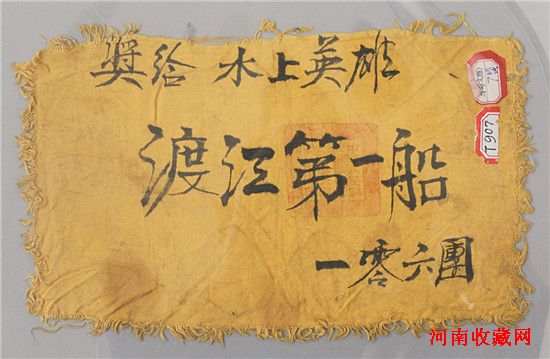 奬给 水上英雄
渡江第一船
一零六團
T907
河南收藏网